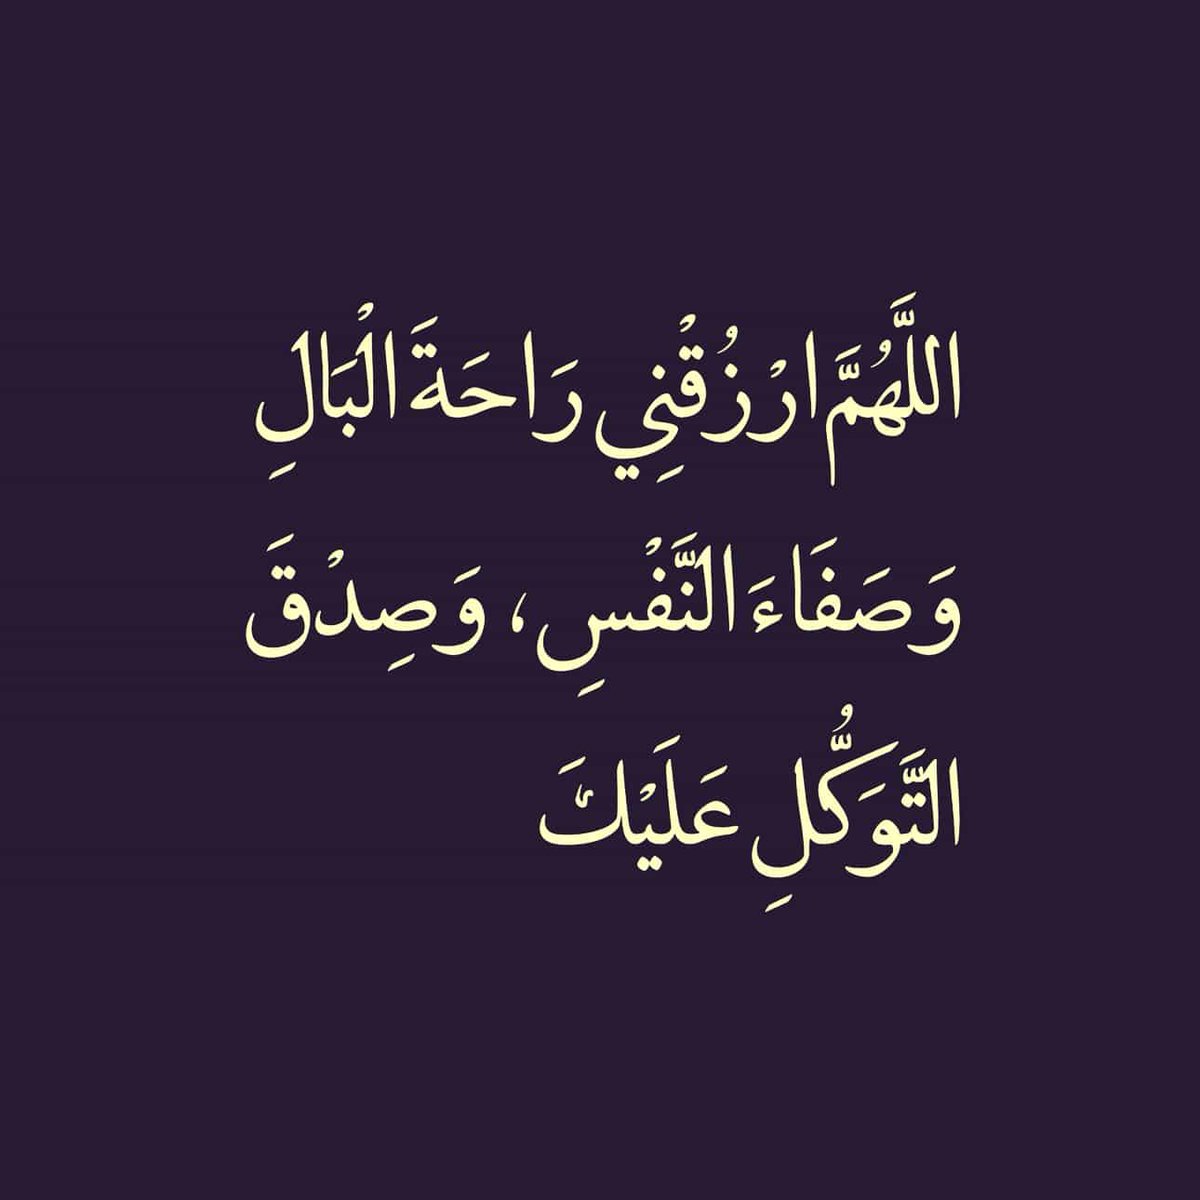 اللَّهُمَّ ارْزُقْنِي رَاحَةَ الْبَالِ
وَصَفَاءَ النَّفْسِ، وَصِدْقَ
التَّوَكُّلِ عَلَيْكَ